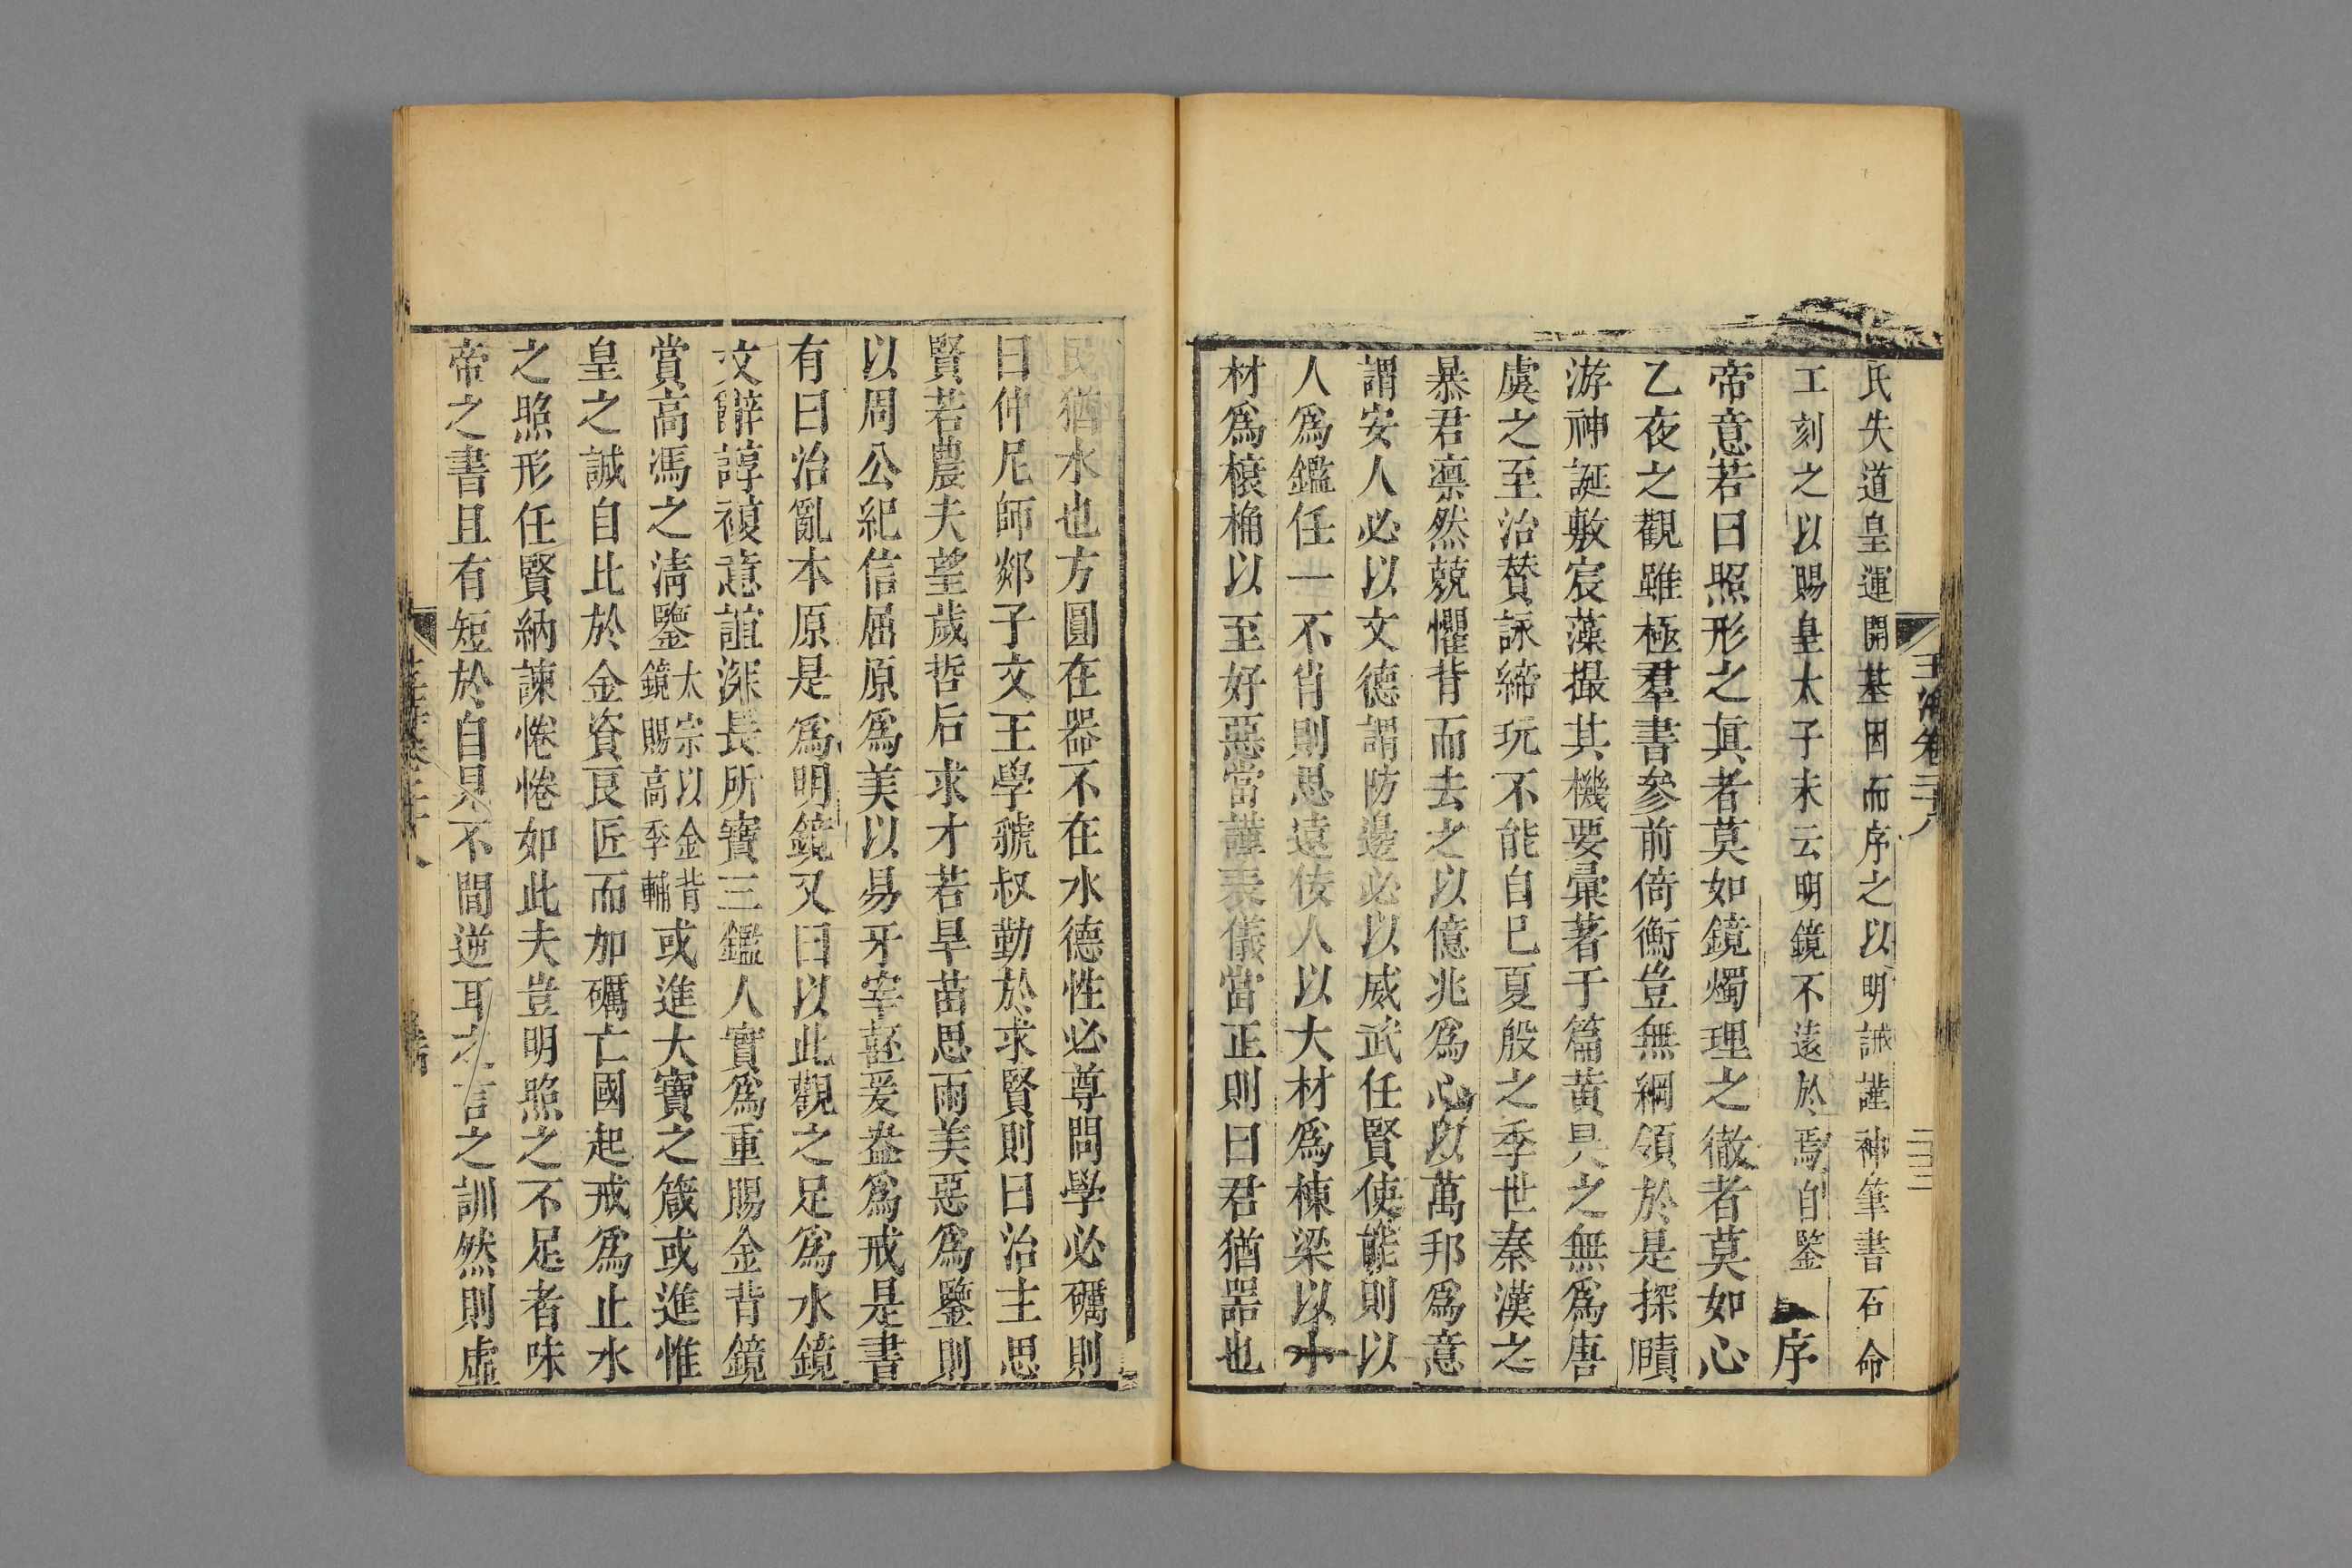 玉海卷二十八
氏失道皇運開基因而序之以明誡謹神筆書石命
工刻之以賜皇太子末云明鏡不遠於焉自鑒
序
帝意若曰照形之眞者莫如鏡燭理之徹者莫如心
乙夜之觀雖極羣書參前倚衡豈無綱領於是探賾
游神誕敷宸藻撮其機要彙著于篇黃具之無爲唐
虞之至治贊詠締玩不能自已夏殷之季世秦漢之
暴君凛然兢懼背而去之以億兆爲心以萬邦爲意
謂安人必以文德謂防邊必以威武任賢使能則以
人爲鑑任一不肖則思遠佞人以大材爲棟梁以小
材爲榱桷以至好惡當謹表儀當正則曰君猶器也
民猶水也方圓在器不在水德性必尊問學必礪則
曰仲尼師郯子文王學虢叔勤於求賢則曰治主思
賢若農夫望歲哲后求才若旱苗思雨美惡爲鑒則
以周公紀信屈原爲美以易牙宰嚭爰盎爲戒是書
有曰治亂本原是爲明鏡又曰以此觀之足爲水鏡
文辭諄複意誼深長所寶三鑑人實爲重賜金背鏡
賞高馮之淸鑒太宗以金背鏡賜高季輔或進大寶之箴或進惟
皇之誠自比於金資良匠而加礪亡國起戒爲止水
之照形任賢納諫惓惓如此夫豈明照之不足者味
帝之書且有短於自見不聞逆耳之言之訓然則虛